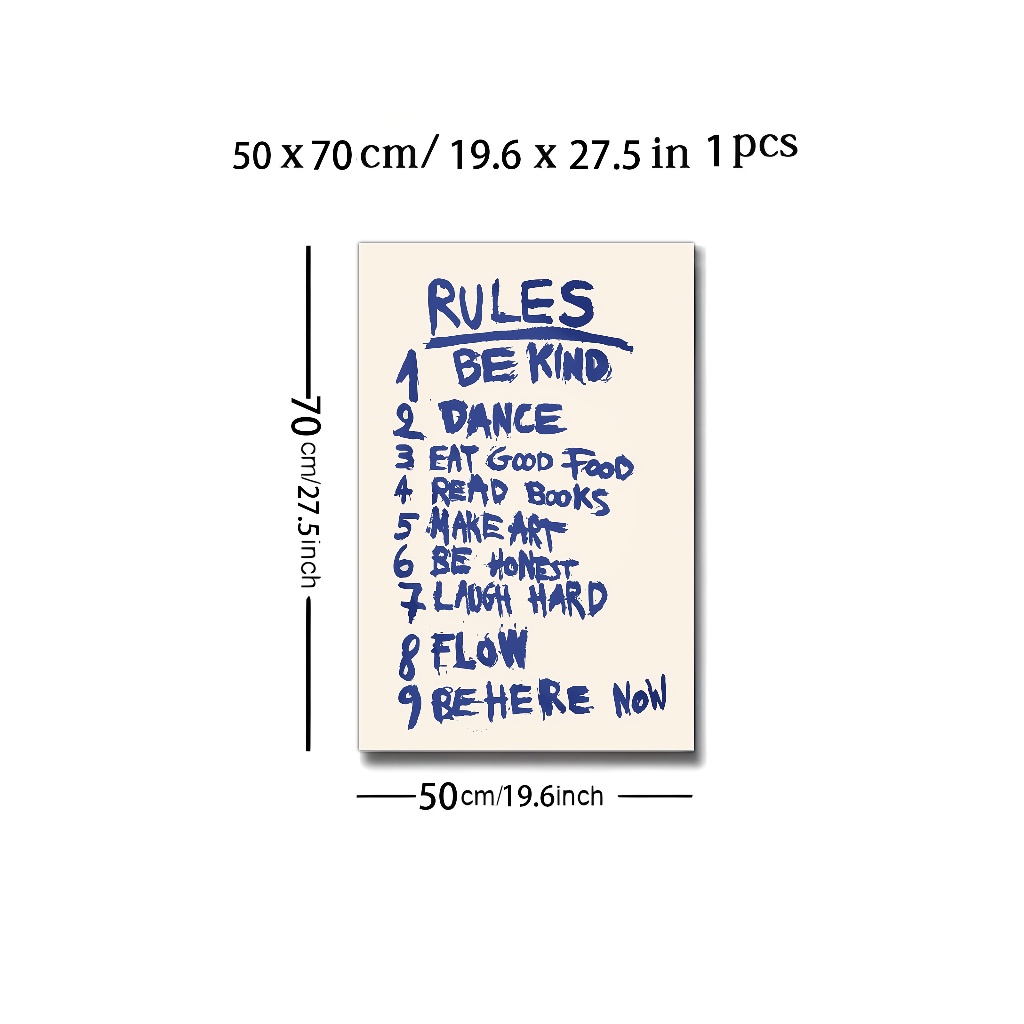 50 x 70 cm/ 19.6 x 27.5 in 1 pcs
RULES
1 BE KIND
2 DANCE
3 EAT GOOD FOOD
4 READ BOOKS
5 MAKE ART
6 BE HONEST
7 LAUGH HARD
8 FLOW
9 BE HERE NOW
70cm/27.5inch
50cm/19.6inch